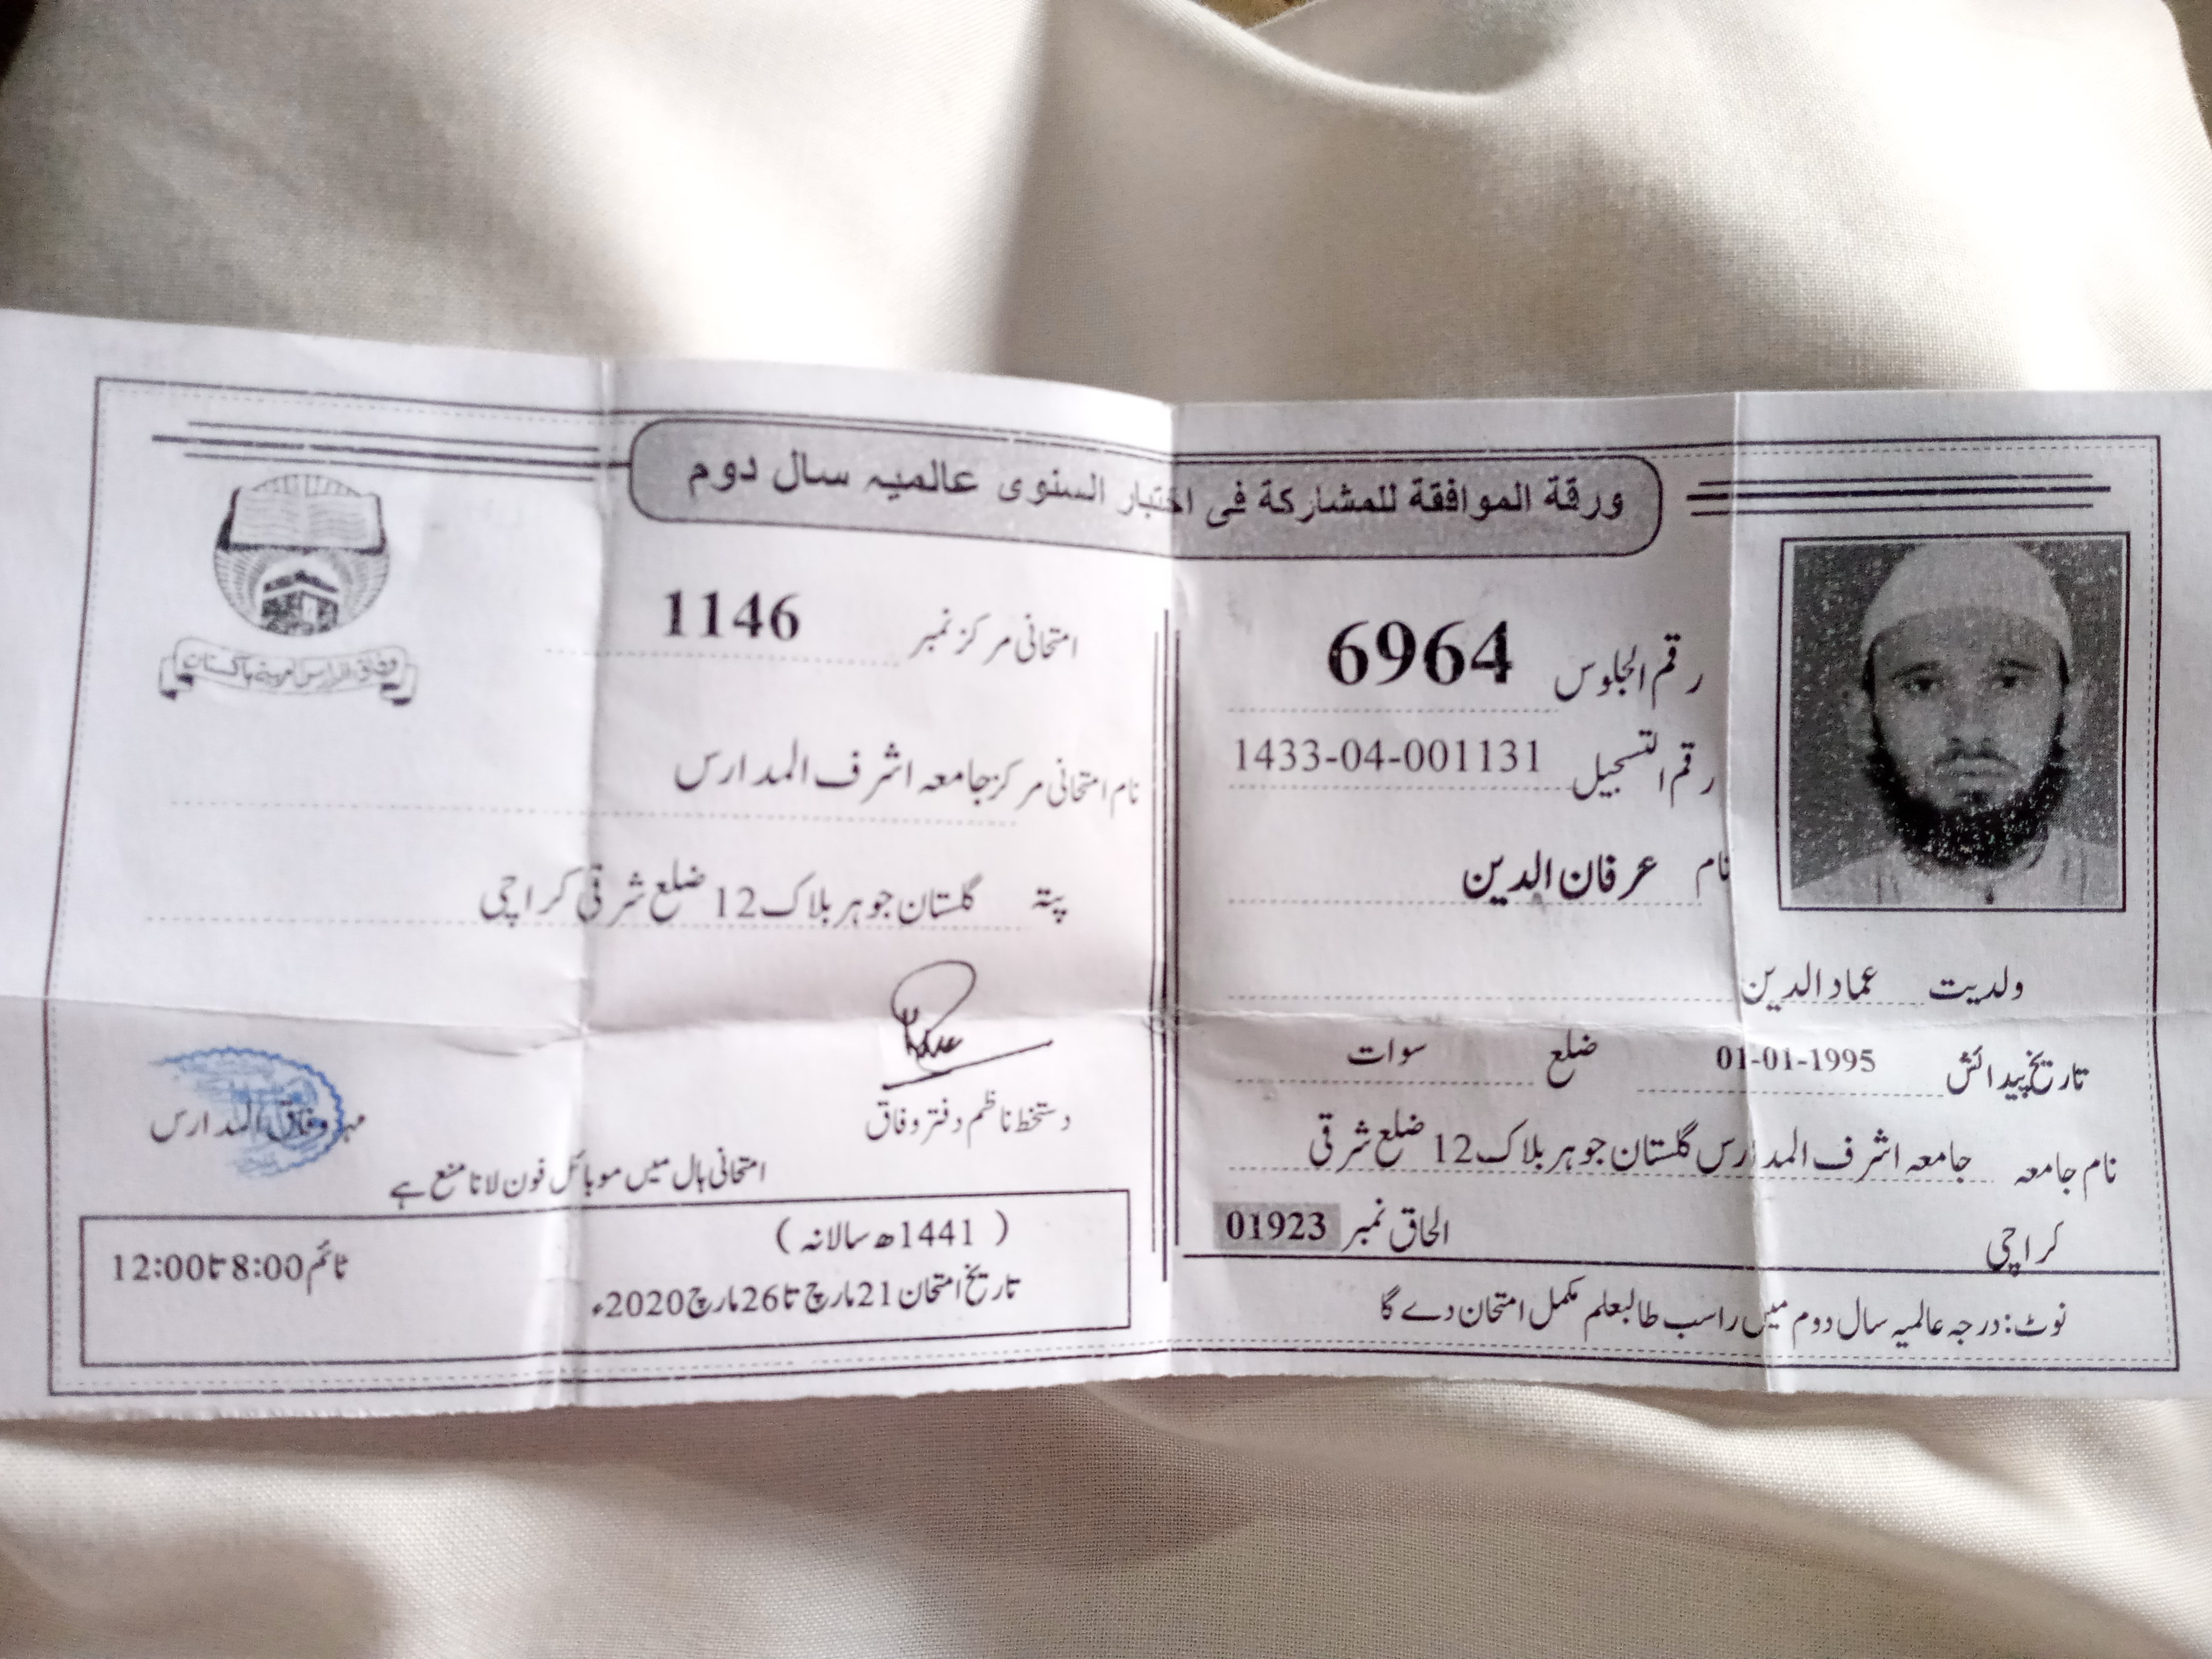 ورقة الموافقة للمشاركة فى اختبار السنوى عالمیہ سال دوم
رقم الجلوس 6964
رقم التسجیل 1433-04-001131
نام عرفان الدین
ولدیت عماد الدین
تاریخ پیدائش 01-01-1995 ضلع سوات
نام جامعہ جامعہ اشرف المدارس گلستان جوہر بلاک 12 ضلع شرقی
کراچی الحاق نمبر 01923
نوٹ: درجہ عالمیہ سال دوم میں راسب طالبعلم مکمل امتحان دے گا
امتحانی مرکز نمبر 1146
وفاق المدارس العربیہ پاکستان
نام امتحانی مرکز جامعہ اشرف المدارس
پتہ گلستان جوہر بلاک 12 ضلع شرقی کراچی
دستخط ناظم دفتر وفاق
مہر وفاق المدارس
امتحانی ہال میں موبائل فون لانا منع ہے
( 1441ھ سالانہ )
تاریخ امتحان 21 مارچ تا 26 مارچ 2020ء
ٹائم 8:00 تا 12:00